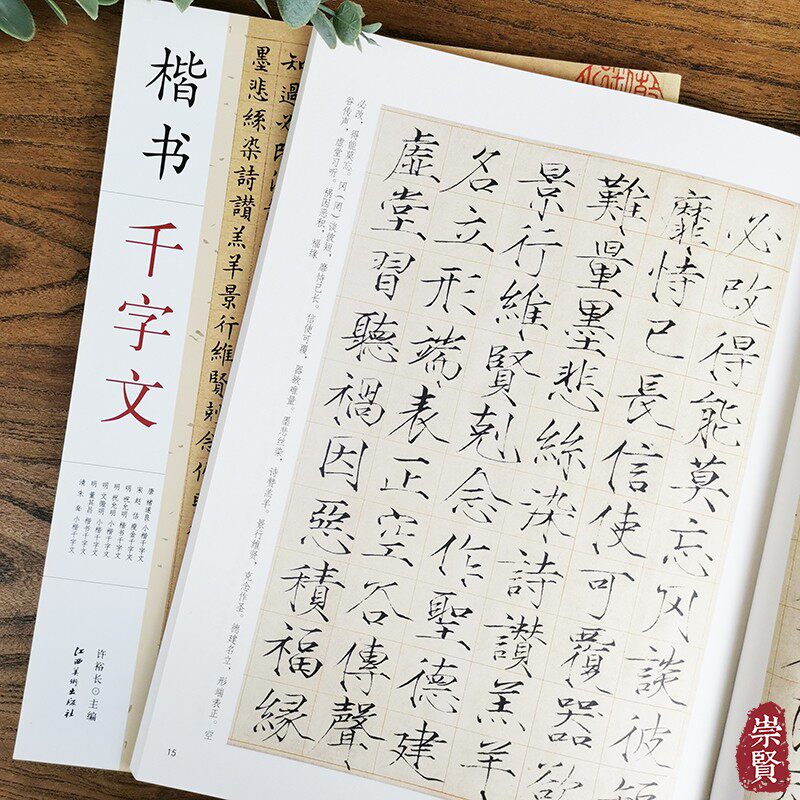 楷书
千字文
唐 褚遂良 小楷千字文
宋 赵佶 瘦金千字文
明 祝允明 楷书千字文
明 祝允明 小楷千字文
明 文徵明 小楷千字文
明 董其昌 楷书千字文
清 朱耷 小楷千字文
许裕长◎主编
江西美术出版社
知過必
墨悲絲染詩讚羔羊景行維賢剋念作
必改得能莫忘罔談彼短
靡恃己長信使可覆器欲
難量墨悲絲染詩讚羔羊
景行維賢剋念作聖德建
名立形端表正空谷傳聲
虛堂習聽禍因惡積福緣
必改，得能莫忘。冈（罔）谈彼短，靡恃己长。信使可覆，器欲难量。墨悲丝染，诗赞羔羊。景行维贤，克念作圣。德建名立，形端表正。空
谷传声，虚堂习听。祸因恶积，福缘
15
崇賢